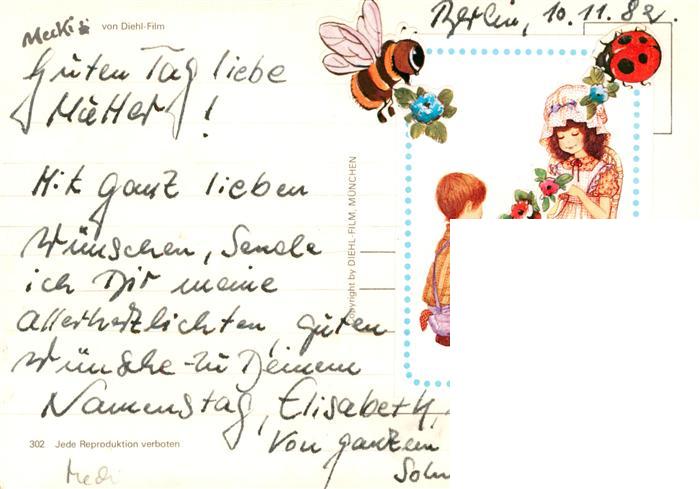 Mecki von Diehl-Film
Berlin, 10.11.82.
Guten Tag liebe
Mutter!
Mit ganz lieben
Wünschen, Sende
ich Dir meine
allerherzlichten, guten
Wünsche zu Deinem
Namenstag, Elisabeth,
Von ganzem
Sohn
302 Jede Reproduktion verboten
Copyright by DIEHL-FILM, MÜNCHEN